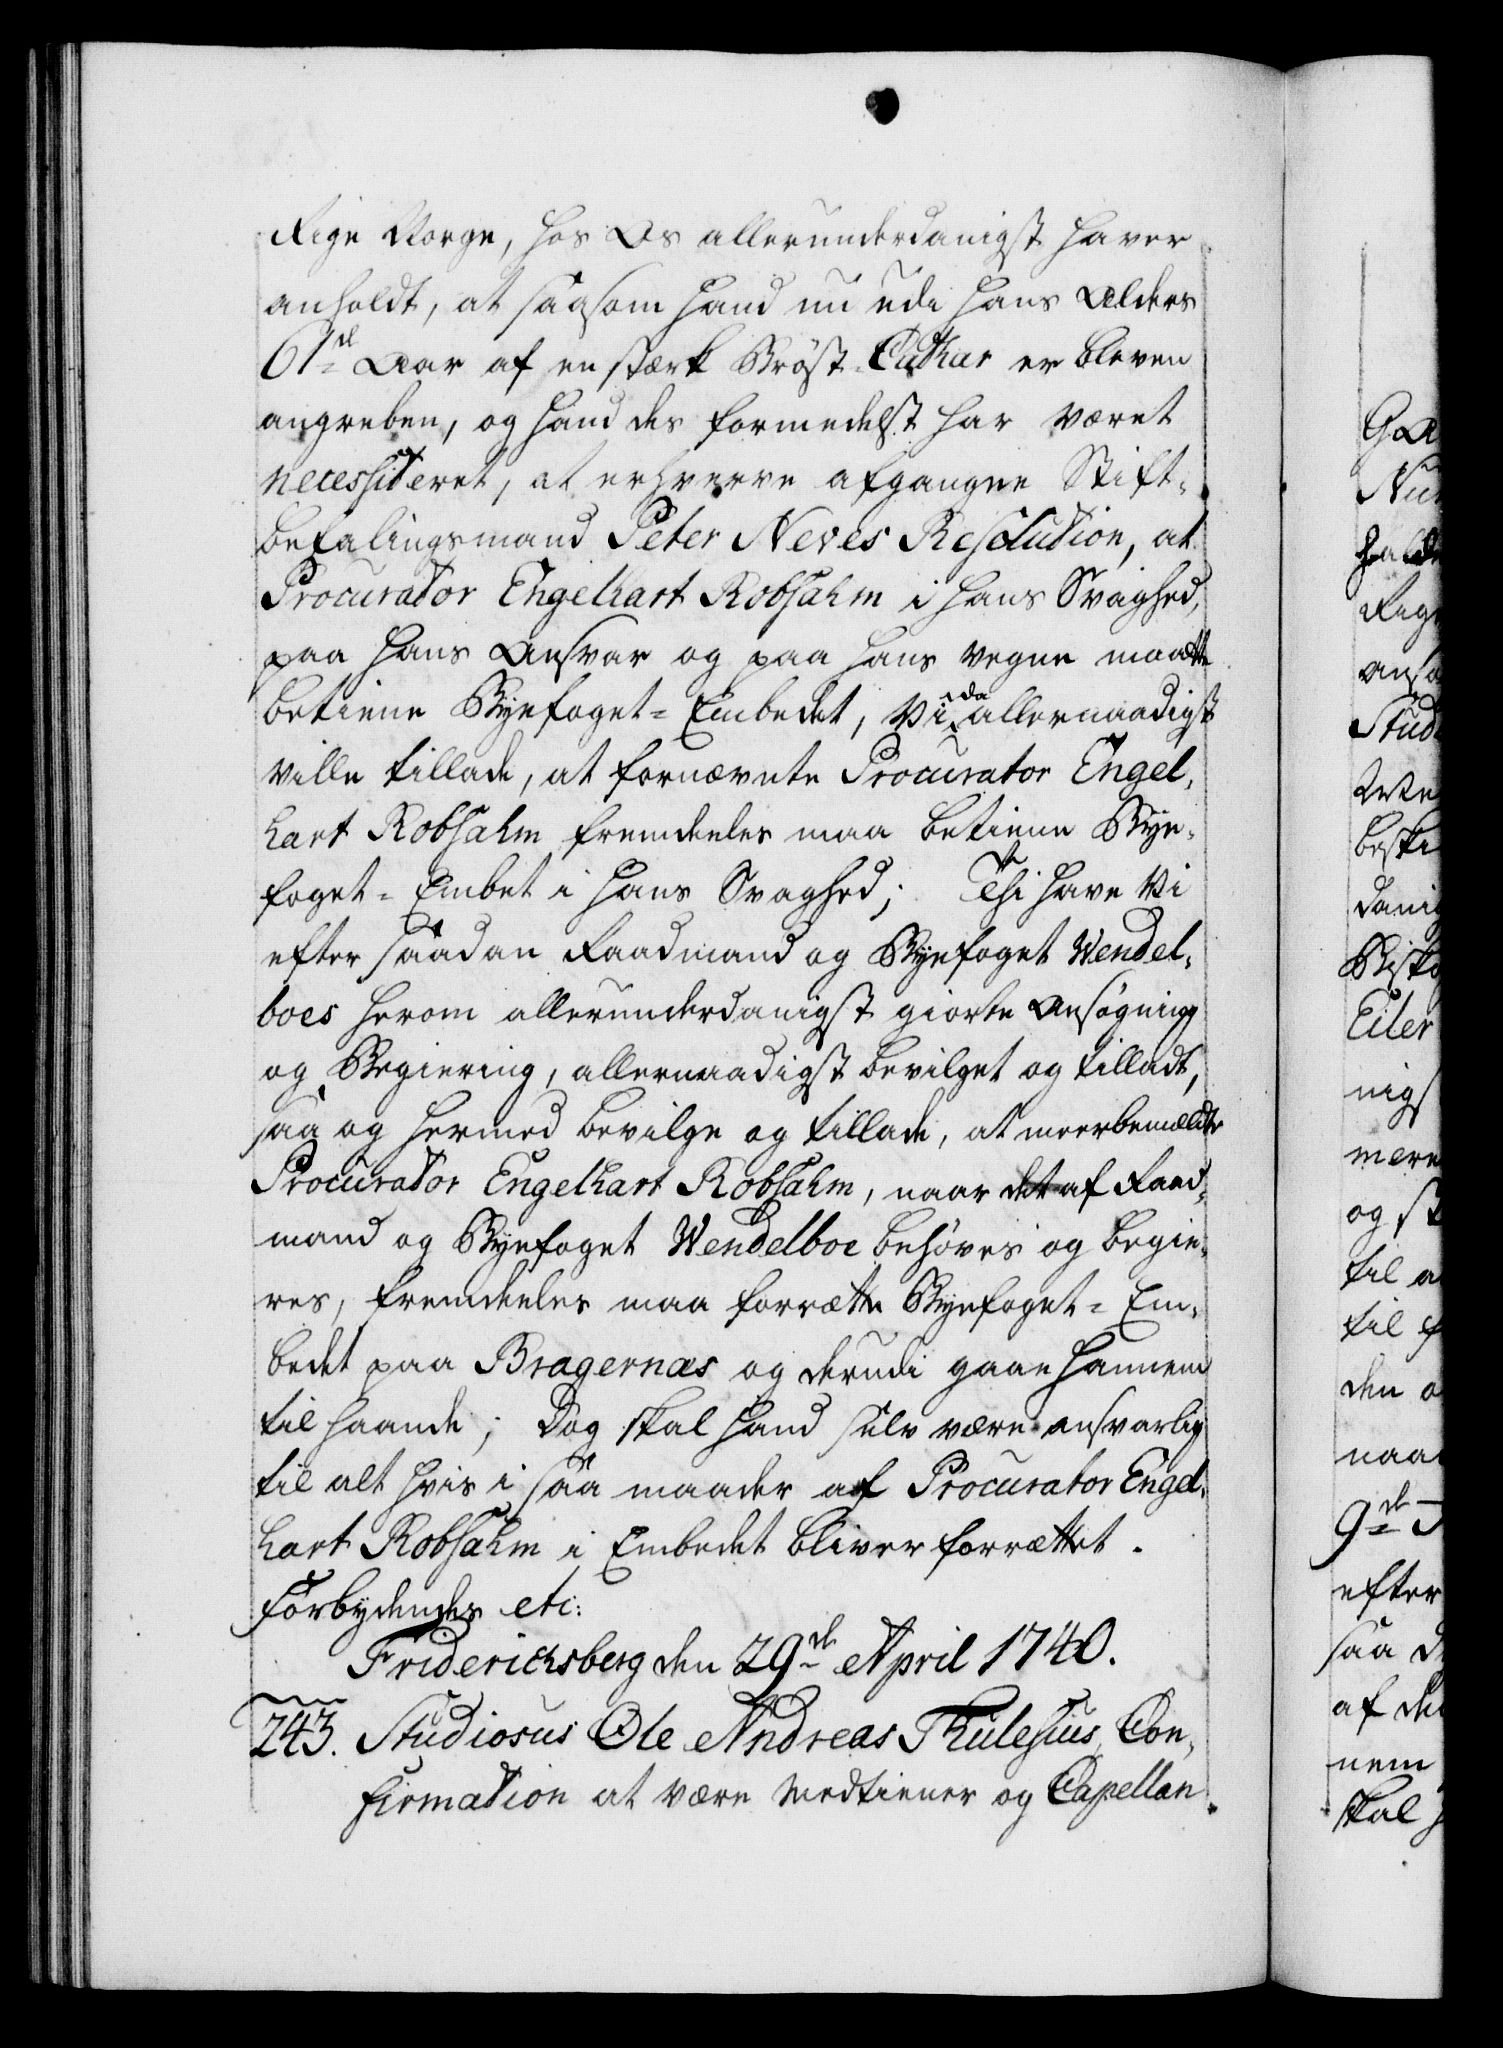 Rige Norge, hos Os allerunderdanigst haver
anholdt, at saasom hand nu udi hans Alders
61de Aar af en stærk Bröst-Cathar er bleven
angreben, og hand des formedelst har været
necessiteret, at erhverve afgangne Stift-
befalingsmand Peter Neves Resolution, at
Procurator Engelhart Robsahm i hans Svaghed,
paa hans Ansvar og paa hans vegne maatte
betiene Byefoget-Embedet, Vi da allernaadigst
ville tillade, at fornævnte Procurator Engel-
hart Robsahm fremdeeles maa betiene Bye-
foget-Embet i hans Svaghed; Thi have Vi
efter saadan Raadmand og Byefoget Wendel-
boes herom allerunderdanigst giorte Ansøgning
og Begiering, allernaadigst bevilget og tilladt,
saa og hermed bevilge og tillade, at meerbemældte
Procurator Engelhart Robsahm, naar det af Raad-
mand og Byefoget Wendelboe behöves og begie-
res, fremdeeles maa forrætte Byefoget-Em-
bedet paa Bragernæs og derudi gaae hannem
til haande; Dog skal hand selv være ansvarlig
til alt hvis i saa maader af Procurator Engel-
hart Robsahm i Embedet bliver forrættet.
Forbydendes etc:
Friderichsberg den 29de April 1740.
243. Studiosus Ole Andreas Thulesius, Con-
firmation at være Medtiener og Capellan